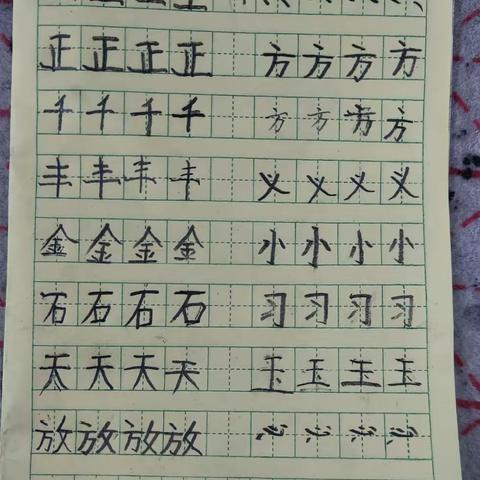 正正正正 方方方方
千千千千 方方方方
丰丰丰丰 义义义义
金金金金 小小小小
石石石石 习习习习
天天天天 玉玉玉玉
放放放放